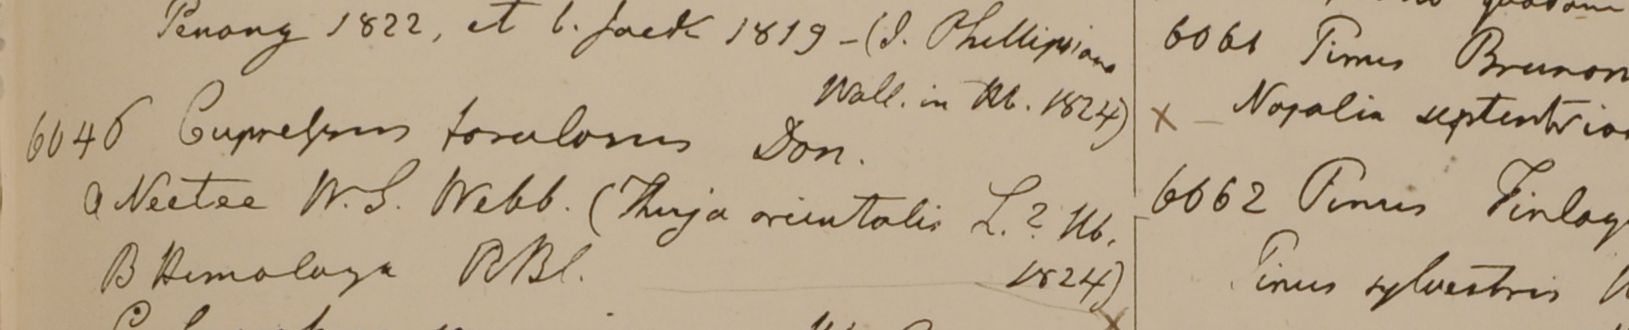 Penang 1822, et b. Jack 1819 – (I. Phillipsiana
Wall. in Hb. 1824)
6046 Cupressus torulosus Don.
a Neetee W. S. Webb. (Thuja orientalis L.? Hb.
1824)
B Himalaya RBl.
6061 Pinus Brunon
x – Napalia septentrio
6062 Pinus Finlay
Pinus sylvestris